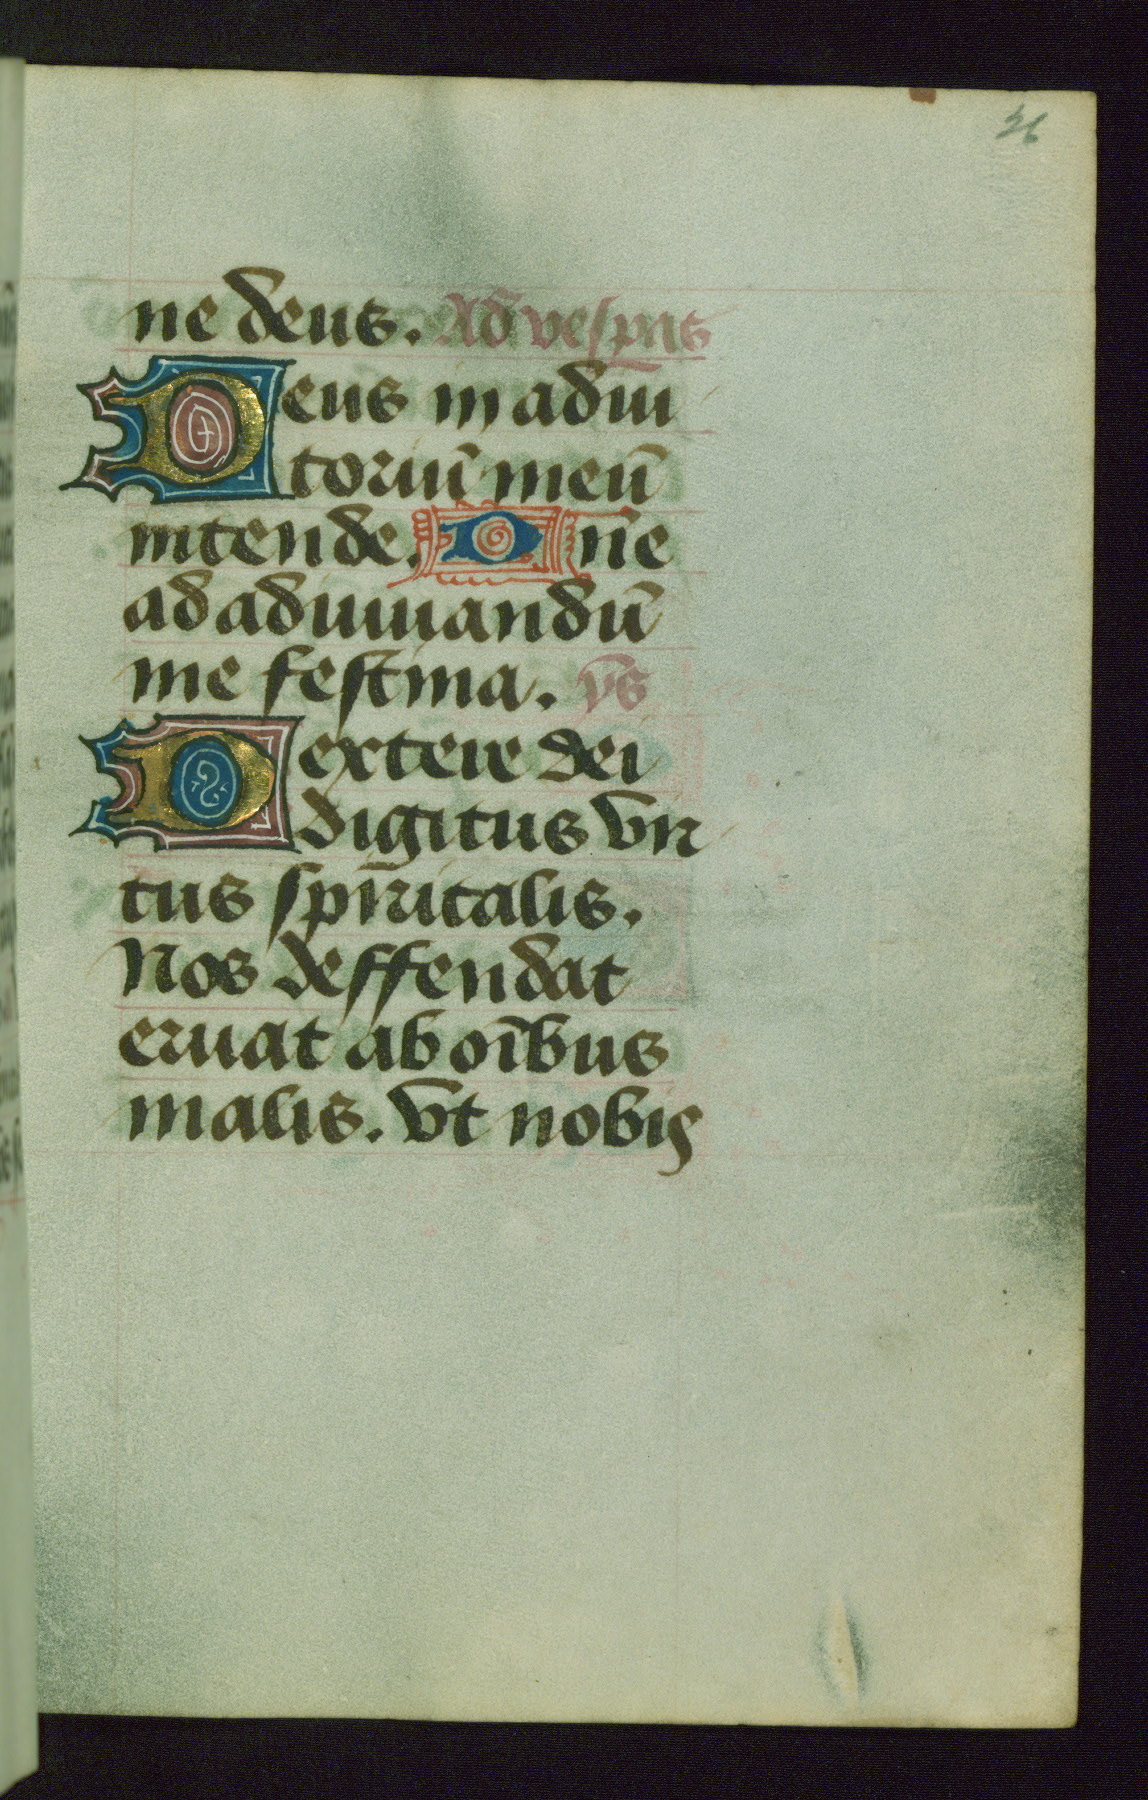 26
ne deus. Ad vespas
Deus in adiu
toriū meū
intende. Dn̄e
ad adiuuandū
me festina. v̄s
Dextere dei
digitus vir
tus sp̄iritalis.
Nos deffendat
eruat ab oībus
malis. Vt nobis